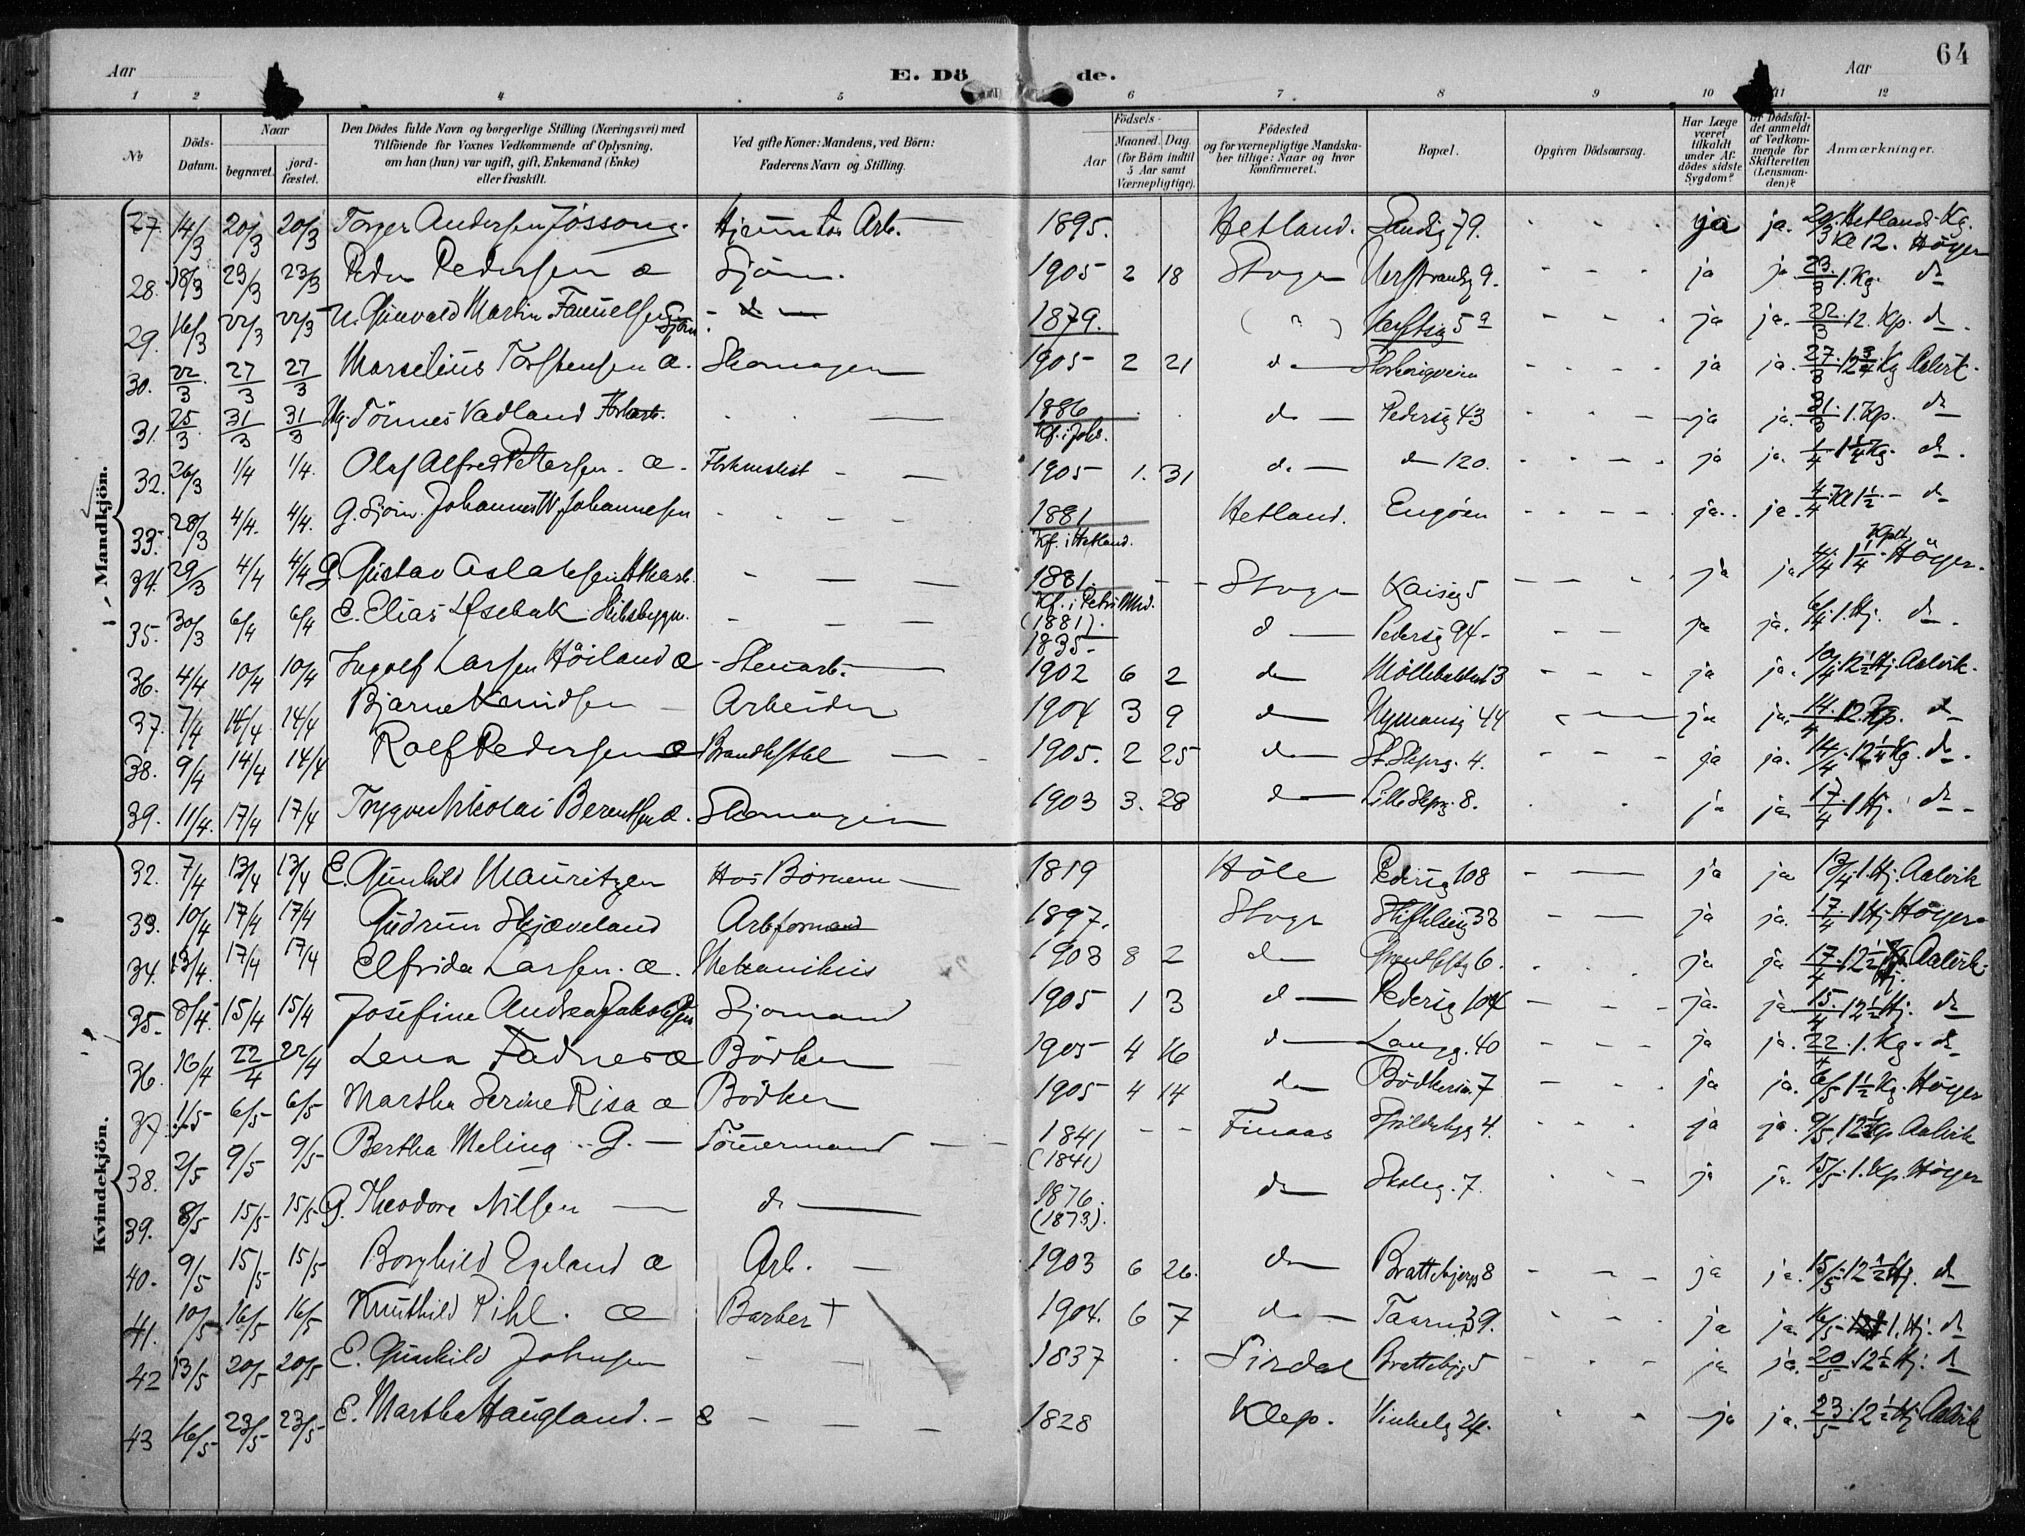 64
Aar
E. Dö
de.
Aar
1 2 4 5 6 7 8 9 10 11 12
No
Döds-Datum.
Naar
begravet.
jord-fæstet.
Den Dödes fulde Navn og borgerlige Stilling (Næringsvei) med
Tilföiende for Voxnes Vedkommende af Oplysning,
om han (hun) var ugift, gift, Enkemand (Enke)
eller fraskilt.
Ved gifte Koner: Mandens, ved Börn:
Faderens Navn og Stilling.
Födsels-
Aar
Maaned. Dag
(for Börn indtil
5 Aar samt
Værnepligtige).
Födested
og for værnepligtige Mandska-
ber tillige: Naar og hvor
konfirmeret.
Bopæl.
Opgiven Dödsaarsag.
Har Læge
været
tilkaldt
under Af-
dödes sidste
Sygdom?
Er Dödsfal-
det anmeldt
af Vedkom-
mende for
Skifteretten
(Lensman-
den)?
Anmærkninger.
Mandkjön.
27. 14/3 20/3 20/3 Torger Andersen Jössong. Arb. 1895. Hetland. 79. ja ja. 20/3 Hetland Kg. Kl 12. Höyer
28. 18/3 23/3 23/3 Peder Pedersen æ Sjöm. 1905 2 18 9. ja ja 23/3 1. Kg. do
29. 16/3 22/3 22/3 U. Gunvald Martin Sjöm. do 1879. 5a ja ja. 22/3 12. Kp. do.
30. 22/3 27/3 27/3 Marselius Torstensen æ. Skomager 1905 2 21 do ja ja. 27/3 12 3/4 Kg Aalvik.
31. 25/3 31/3 31/3 Ug. Tönnes Vadland 1886 Kf. i Joh. do Pedersg 43 ja ja. 31/3 1. Kp. do
32. 26/3 1/4 1/4. Olaf Alfred Pettersen. æ. 1905 1. 31 do do 120. ja ja. 1/4 1 1/4 Kg. do.
33. 28/3 4/4. 4/4. G. Sjöm. Johannes W. Johannesen 1881 Kf. i Hetland. Hetland. Engöen ja. ja. 4/4 Kl 1 1/2 do
34. 29/3 4/4 4/4 G Gustav Aslaksen 1881. Kf. i Petri (1881). Kaisg 5 ja ja 4/4 1 1/4 Höyer.
35. 30/3 6/4 6/4 E. Elias Skibsbygm. 1835 do Pedersg 94 ja ja. 6/4 1. Hj. do.
36. 4/4 10/4 10/4 Ingolf Larsen Höiland æ Stenarb. 1902 6 2 do Möllebakken 13 ja ja. 10/4 12 1/2 Hj. Aalvik.
37. 7/4 14/4 14/4 Bjarne Knudsen Arbeider 1904 3 9 do Nymansg 44 ja ja. 14/4 12. Kp. do
38. 9/4 14/4 14/4 Rolf Pedersen æ 1905. 2 25 do St. Skprg. 4. ja ja. 14/4 12 1/4 Kg. do.
39. 11/4. 17/4 17/4 Trygve Nikolai Berentsen æ. Skomager 1903 3. 28 do Lille Skprg. 8. ja ja. 17/4 1 Hj. do
Kvindekjön.
32. 7/4 13/4 13/4 E. Gunhild Mauritzen Hos Börnene 1819 Höle Pedersg 108 ja ja 13/4. 1. Hj. Aalvik
33. 10/4 17/4 17/4 Gudrun Skjæveland Arbformand 1897. 33 ja ja. 17/4 1 Hj. Höyer
34. 13/4. 17/4 17/4 Elfrida Larsen. æ. Mekanikus 1903 8 2 do 6. ja ja 17/4 12 1/2 Hj. Aalvik
35. 8/4. 15/4 15/4 Josefine Andrea Jakobsen Sjömand 1905 1 3 do Pedersg 104 ja. ja 15/4 12 1/2 Hj. do
36. 16/4 22/4 22/4 Lena Fadnes æ Bödker 1905 4 16 do Langg. 40 ja ja. 22/4 1. Kg. do
37. 1/5 6/5 6/5 Martha Serine Risa æ Bödker 1905 4 14 do 7 ja ja. 6/5 1 1/2 Kg. Höyer
38. 2/5 9/5 9/5 Bertha Meling. G. Tömmermand 1841 (1841) Finaas 4. ja ja. 9/5 12 1/2 Kp Aalvik
39. 8/5 15/5 15/5 G. Theodora Nilsen do 1876. (1873). do Skoleg. 7. ja ja. 15/5. 1. Kp. Höyer
40. 9/5 15/5 15/5 Borghild Egeland æ Arb. 1903 6 26. do 8 ja ja. 15/5 12 1/2 Hj. do
41. 10/5 16/5 16/5 Knuthild Pihl. æ Barber † 1904. 6 7 do 39. ja ja. 16/5 1. Hj. do
42 13/5 20/5 20/5 E. Gunhild Johnsen 1837 Sirdal 5 ja ja. 20/5 12 1/2 Hj. do
43 16/5 23/5 23/5 E. Martha Haugland. 1828 Klep. Vinkelg 24. ja ja. 23/5 12 1/2 Hj Aalvik